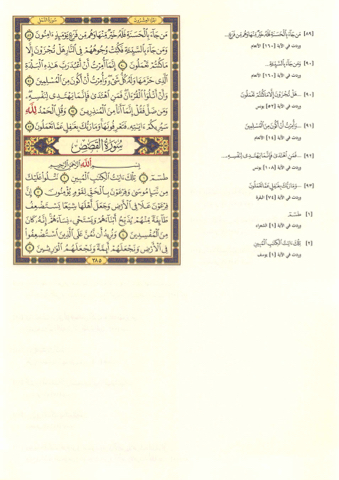 الجزء العشرون
سورة النمل
مَن جَآءَ بِٱلْحَسَنَةِ فَلَهُۥ خَيْرٌ مِّنْهَا وَهُم مِّن فَزَعٍ يَوْمَئِذٍ ءَامِنُونَ ٨٩
وَمَن جَآءَ بِٱلسَّيِّئَةِ فَكُبَّتْ وُجُوهُهُمْ فِى ٱلنَّارِ هَلْ تُجْزَوْنَ إِلَّا
مَا كُنتُمْ تَعْمَلُونَ ٩٠ إِنَّمَآ أُمِرْتُ أَنْ أَعْبُدَ رَبَّ هَٰذِهِ ٱلْبَلْدَةِ
ٱلَّذِى حَرَّمَهَا وَلَهُۥ كُلُّ شَىْءٍ وَأُمِرْتُ أَنْ أَكُونَ مِنَ ٱلْمُسْلِمِينَ ٩١
وَأَنْ أَتْلُوَا۟ ٱلْقُرْءَانَ فَمَنِ ٱهْتَدَىٰ فَإِنَّمَا يَهْتَدِى لِنَفْسِهِۦ
وَمَن ضَلَّ فَقُلْ إِنَّمَآ أَنَا۠ مِنَ ٱلْمُنذِرِينَ ٩٢ وَقُلِ ٱلْحَمْدُ لِلَّهِ
سَيُرِيكُمْ ءَايَٰتِهِۦ فَتَعْرِفُونَهَا وَمَا رَبُّكَ بِغَٰفِلٍ عَمَّا تَعْمَلُونَ ٩٣
سُورَةُ القَصَصِ
بِسْمِ ٱللَّهِ ٱلرَّحْمَٰنِ ٱلرَّحِيمِ
طسٓمٓ ١ تِلْكَ ءَايَٰتُ ٱلْكِتَٰبِ ٱلْمُبِينِ ٢ نَتْلُوا۟ عَلَيْكَ
مِن نَّبَإِ مُوسَىٰ وَفِرْعَوْنَ بِٱلْحَقِّ لِقَوْمٍ يُؤْمِنُونَ ٣ إِنَّ
فِرْعَوْنَ عَلَا فِى ٱلْأَرْضِ وَجَعَلَ أَهْلَهَا شِيَعًا يَسْتَضْعِفُ
طَآئِفَةً مِّنْهُمْ يُذَبِّحُ أَبْنَآءَهُمْ وَيَسْتَحْىِۦ نِسَآءَهُمْ إِنَّهُۥ كَانَ
مِنَ ٱلْمُفْسِدِينَ ٤ وَنُرِيدُ أَن نَّمُنَّ عَلَى ٱلَّذِينَ ٱسْتُضْعِفُوا۟
فِى ٱلْأَرْضِ وَنَجْعَلَهُمْ أَئِمَّةً وَنَجْعَلَهُمُ ٱلْوَٰرِثِينَ ٥
٣٨٥
[٨٩] مَن جَآءَ بِٱلْحَسَنَةِ فَلَهُۥ خَيْرٌ مِّنْهَا وَهُم مِّن فَزَعٍ...
وردت في الآية [١٦٠] الأنعام
[٩٠] وَمَن جَآءَ بِٱلسَّيِّئَةِ...
وردت في الآية [١٦٠] الأنعام
[٩٠] ...هَلْ تُجْزَوْنَ إِلَّا مَا كُنتُمْ تَعْمَلُونَ
وردت في الآية [٥٢] يونس
[٩١] ...وَأُمِرْتُ أَنْ أَكُونَ مِنَ ٱلْمُسْلِمِينَ
وردت في الآية الأنعام
[٩٢] ...فَمَنِ ٱهْتَدَىٰ فَإِنَّمَا يَهْتَدِى لِنَفْسِهِۦ...
وردت في الآية [١٠٨] يونس
[٩٣] ...وَمَا رَبُّكَ بِغَٰفِلٍ عَمَّا تَعْمَلُونَ
وردت في الآية [٧٤] البقرة
[١] طسٓمٓ
وردت في الآية [١] الشعراء
[٢] تِلْكَ ءَايَٰتُ ٱلْكِتَٰبِ ٱلْمُبِينِ
وردت في الآية [١] يوسف